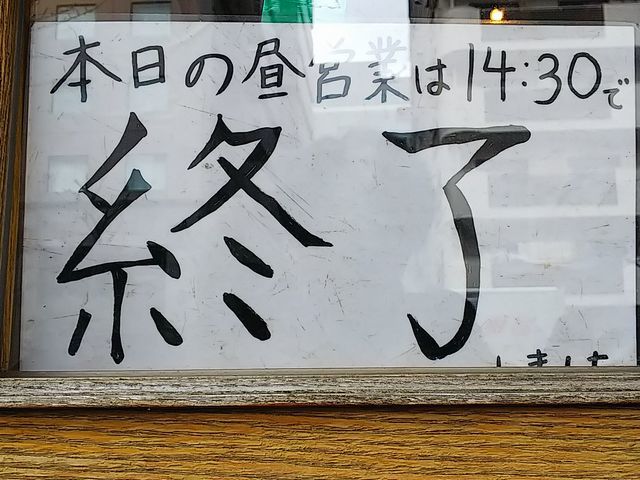 本日の昼営業は14:30で
終了
します